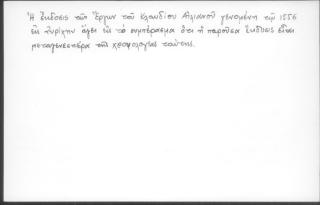 Ἡ ἔκδοσις τῶν Ἔργων τοῦ Κλαυδίου Αἰλιανοῦ γενομένη τῷ 1556
εἰς Τυρίχην ἄγει εἰς τὸ συμπέρασμα ὅτι ἡ παροῦσα ἔκδοσις εἶναι
μεταγενεστέρα τῆς χρονολογίας ταύτης.